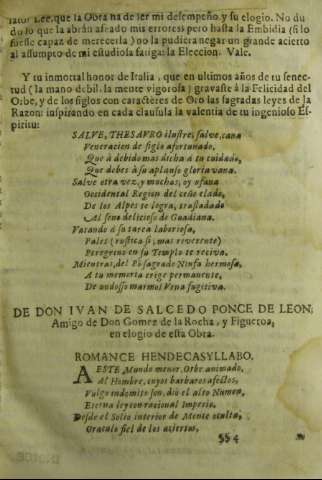 Lector Lee. que la Obra ha de ser mi desempeño, y su elogio. No du
do lo que la abrán afeado mis errores: pero hasta la Embidia (si lo
fuesse capaz de merecerla) no la pudiera negar un grande acierto
al assumpto de mi estudiosa fatiga: la Eleccion. Vale.
Y tu inmortal honor de Italia, que en ultimos años de tu senec-
tud (la mano debil, la mente vigorosa) gravaste á la Felicidad del
Orbe, y de los siglos con caractères de Oro las sagradas leyes de la
Razon: inspirando en cada clausula la valentia de tu ingenioso Es-
piritu:
SALVE, THESAVRO ilustre, salve, cana
Veneracion de siglo afortunado,
Que à debido mas dicha à tu cuidado,
Que debes à su aplauso gloria vana.
Salve otra vez, y muchas, oy ufana
Occidental Region del ceño elado,
De los Alpes te logra, trasladado
Al seno delicioso de Guadiana.
Vacando à su tarea laboriosa,
Pales (rustica si, mas reverente)
Peregrino en su Templo te reciva.
Mientras, del Pò sagrado Ninfa hermosa,
A tu memoria erige permanente,
De undoso marmol Vrna fugitiva.
DE DON IVAN DE SALCEDO PONCE DE LEON;
Amigo de Don Gomez de la Rocha, y Figueroa,
en elogio de esta Obra.
ROMANCE HENDECASYLLABO.
A ESTE Mundo menor, Orbe animado,
Al Hombre, cuyos barbaros afectos,
Vulgo indomito son, diò el alto Numen,
Eterna ley con racional Imperio.
Desde el Solio interior de Mente oculta,
Oraculo fiel de los aciertos,
§§4